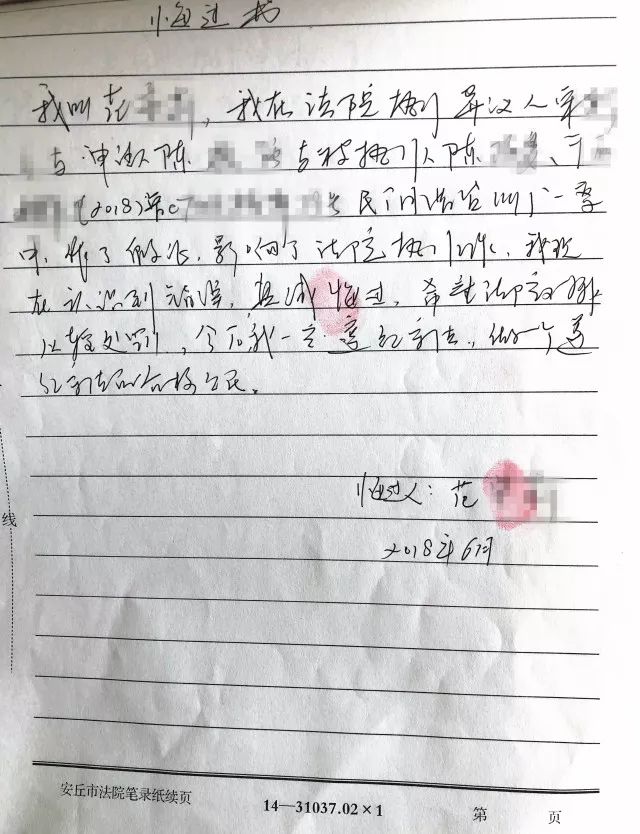 悔过书
我叫范 ，我在法院执行异议人
与申请人陈 与被执行人陈 、于
(2018)第 民间借贷纠纷一案
中，作了假证，影响了法院执行工作，我现
在认识到错误，真诚悔过，希望法院对我
从轻处罚，今后我一定遵纪守法，做一个遵
纪守法的合格公民。
悔过人：范
2018年6月
线
安丘市法院笔录纸续页 14—31037.02×1 第 页